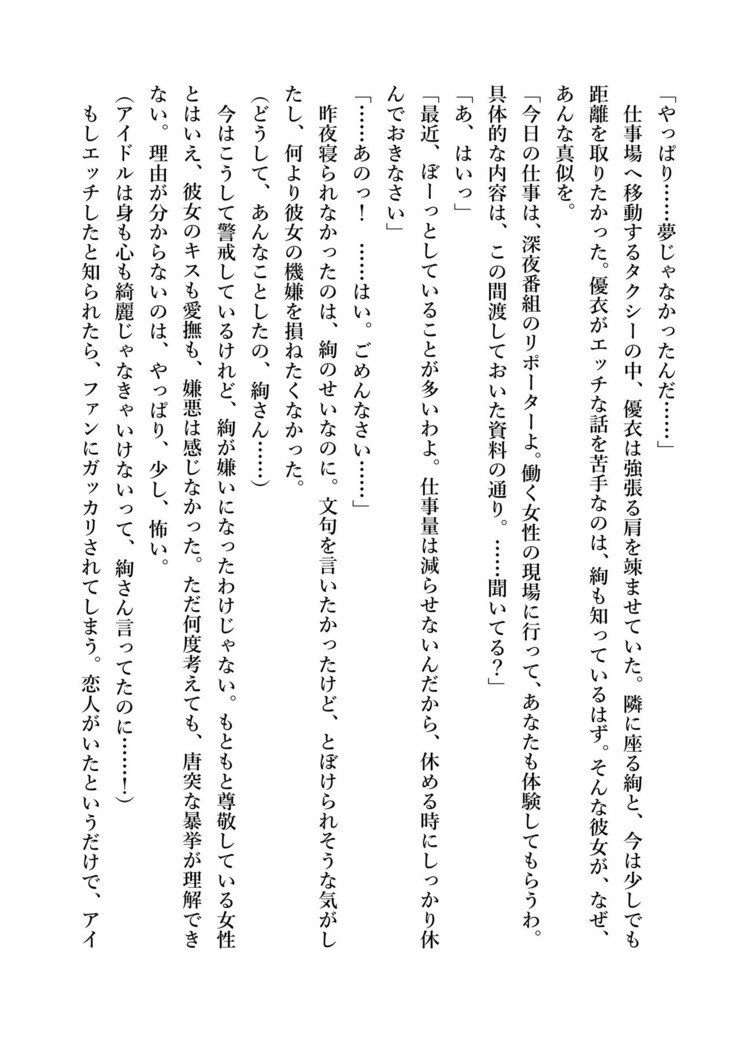 「やっぱり……夢じゃなかったんだ……」
　仕事場へ移動するタクシーの中、優衣は強張る肩を竦ませていた。隣に座る絢と、今は少しでも
距離を取りたかった。優衣がエッチな話を苦手なのは、絢も知っているはず。そんな彼女が、なぜ、
あんな真似を。
「今日の仕事は、深夜番組のリポーターよ。働く女性の現場に行って、あなたも体験してもらうわ。
具体的な内容は、この間渡しておいた資料の通り。……聞いてる？」
「あ、はいっ」
「最近、ぼーっとしていることが多いわよ。仕事量は減らせないんだから、休める時にしっかり休
んでおきなさい」
「……あのっ！　……はい。ごめんなさい……」
　昨夜寝られなかったのは、絢のせいなのに。文句を言いたかったけど、とぼけられそうな気がし
たし、何より彼女の機嫌を損ねたくなかった。
（どうして、あんなことしたの、絢さん……）
　今はこうして警戒しているけれど、絢が嫌いになったわけじゃない。もともと尊敬している女性
とはいえ、彼女のキスも愛撫も、嫌悪は感じなかった。ただ何度考えても、唐突な暴挙が理解でき
ない。理由が分からないのは、やっぱり、少し、怖い。
（アイドルは身も心も綺麗じゃなきゃいけないって、絢さん言ってたのに……！）
　もしエッチしたと知られたら、ファンにガッカリされてしまう。恋人がいたというだけで、アイ